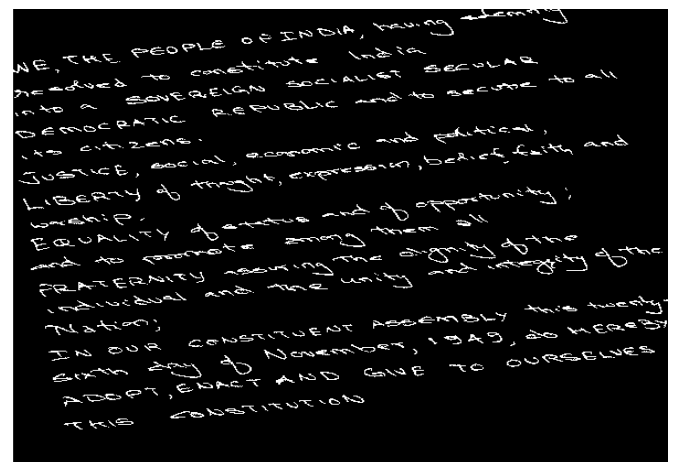 WE, THE PEOPLE OF INDIA, having solemnly
resolved to constitute India
into a SOVEREIGN SOCIALIST SECULAR
DEMOCRATIC REPUBLIC and to secure to all
its citizens.
JUSTICE, social, economic and political,
LIBERTY of thought, expression, belief, faith and
worship.
EQUALITY of status and of opportunity;
and to promote among them all
FRATERNITY assuring the dignity of the
individual and the unity and integrity of the
Nation;
IN OUR CONSTITUENT ASSEMBLY this twenty-
sixth day of November, 1949, do HEREBY
ADOPT, ENACT AND GIVE TO OURSELVES
THIS CONSTITUTION